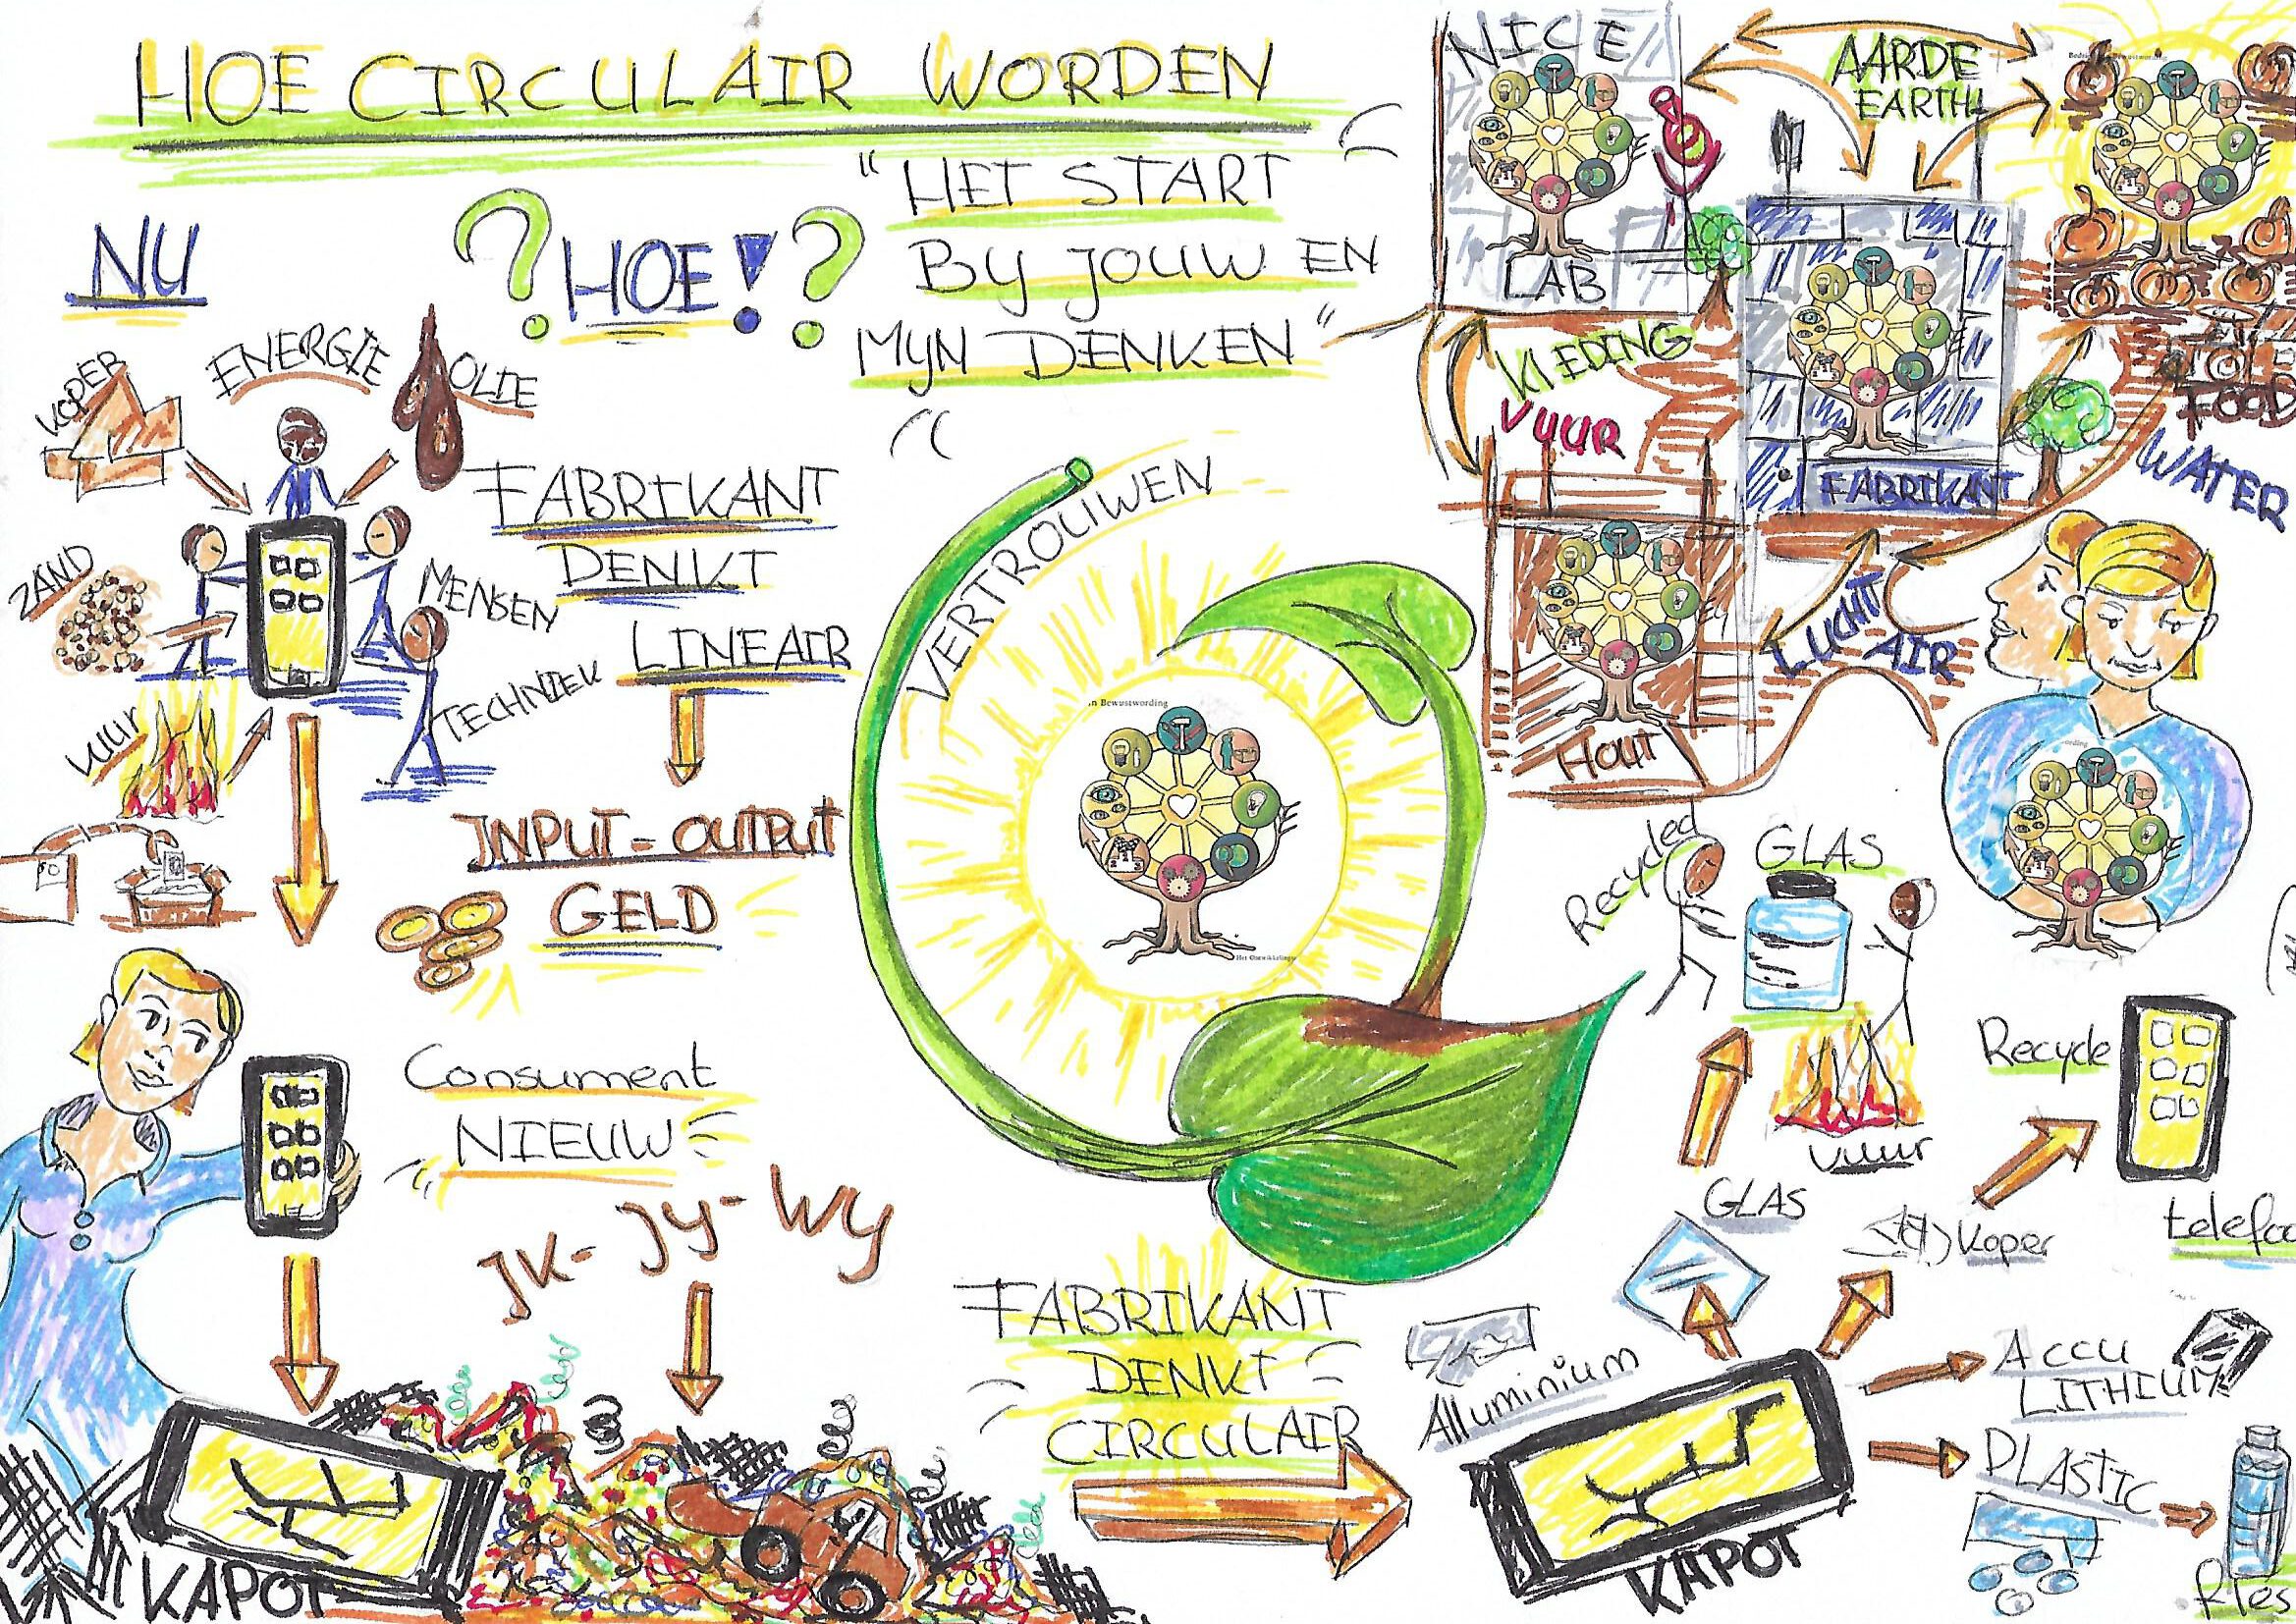 HOE CIRCULAIR WORDEN
"HET START
BY JOUW EN
MYN DENKEN"
NU
? HOE! ?
KOPER
ENERGIE
OLIE
ZAND
MENSEN
TECHNIEK
VUUR
FABRIKANT
DENKT
LINEAIR
INPUT - OUTPUT
GELD
Consument
NIEUW
IK - JY - WY
KAPOT
VERTROUWEN
in Bewustwording
FABRIKANT
DENKT
CIRCULAIR
NICE
LAB
AARDE
EARTH
KLEDING
VUUR
FABRIKANT
FOOD
WATER
LUCHT
AIR
HOUT
Recycled
GLAS
VUUR
GLAS
Recycle
Koper
Alluminium
ACCU
LITHIUM
PLASTIC
KAPOT